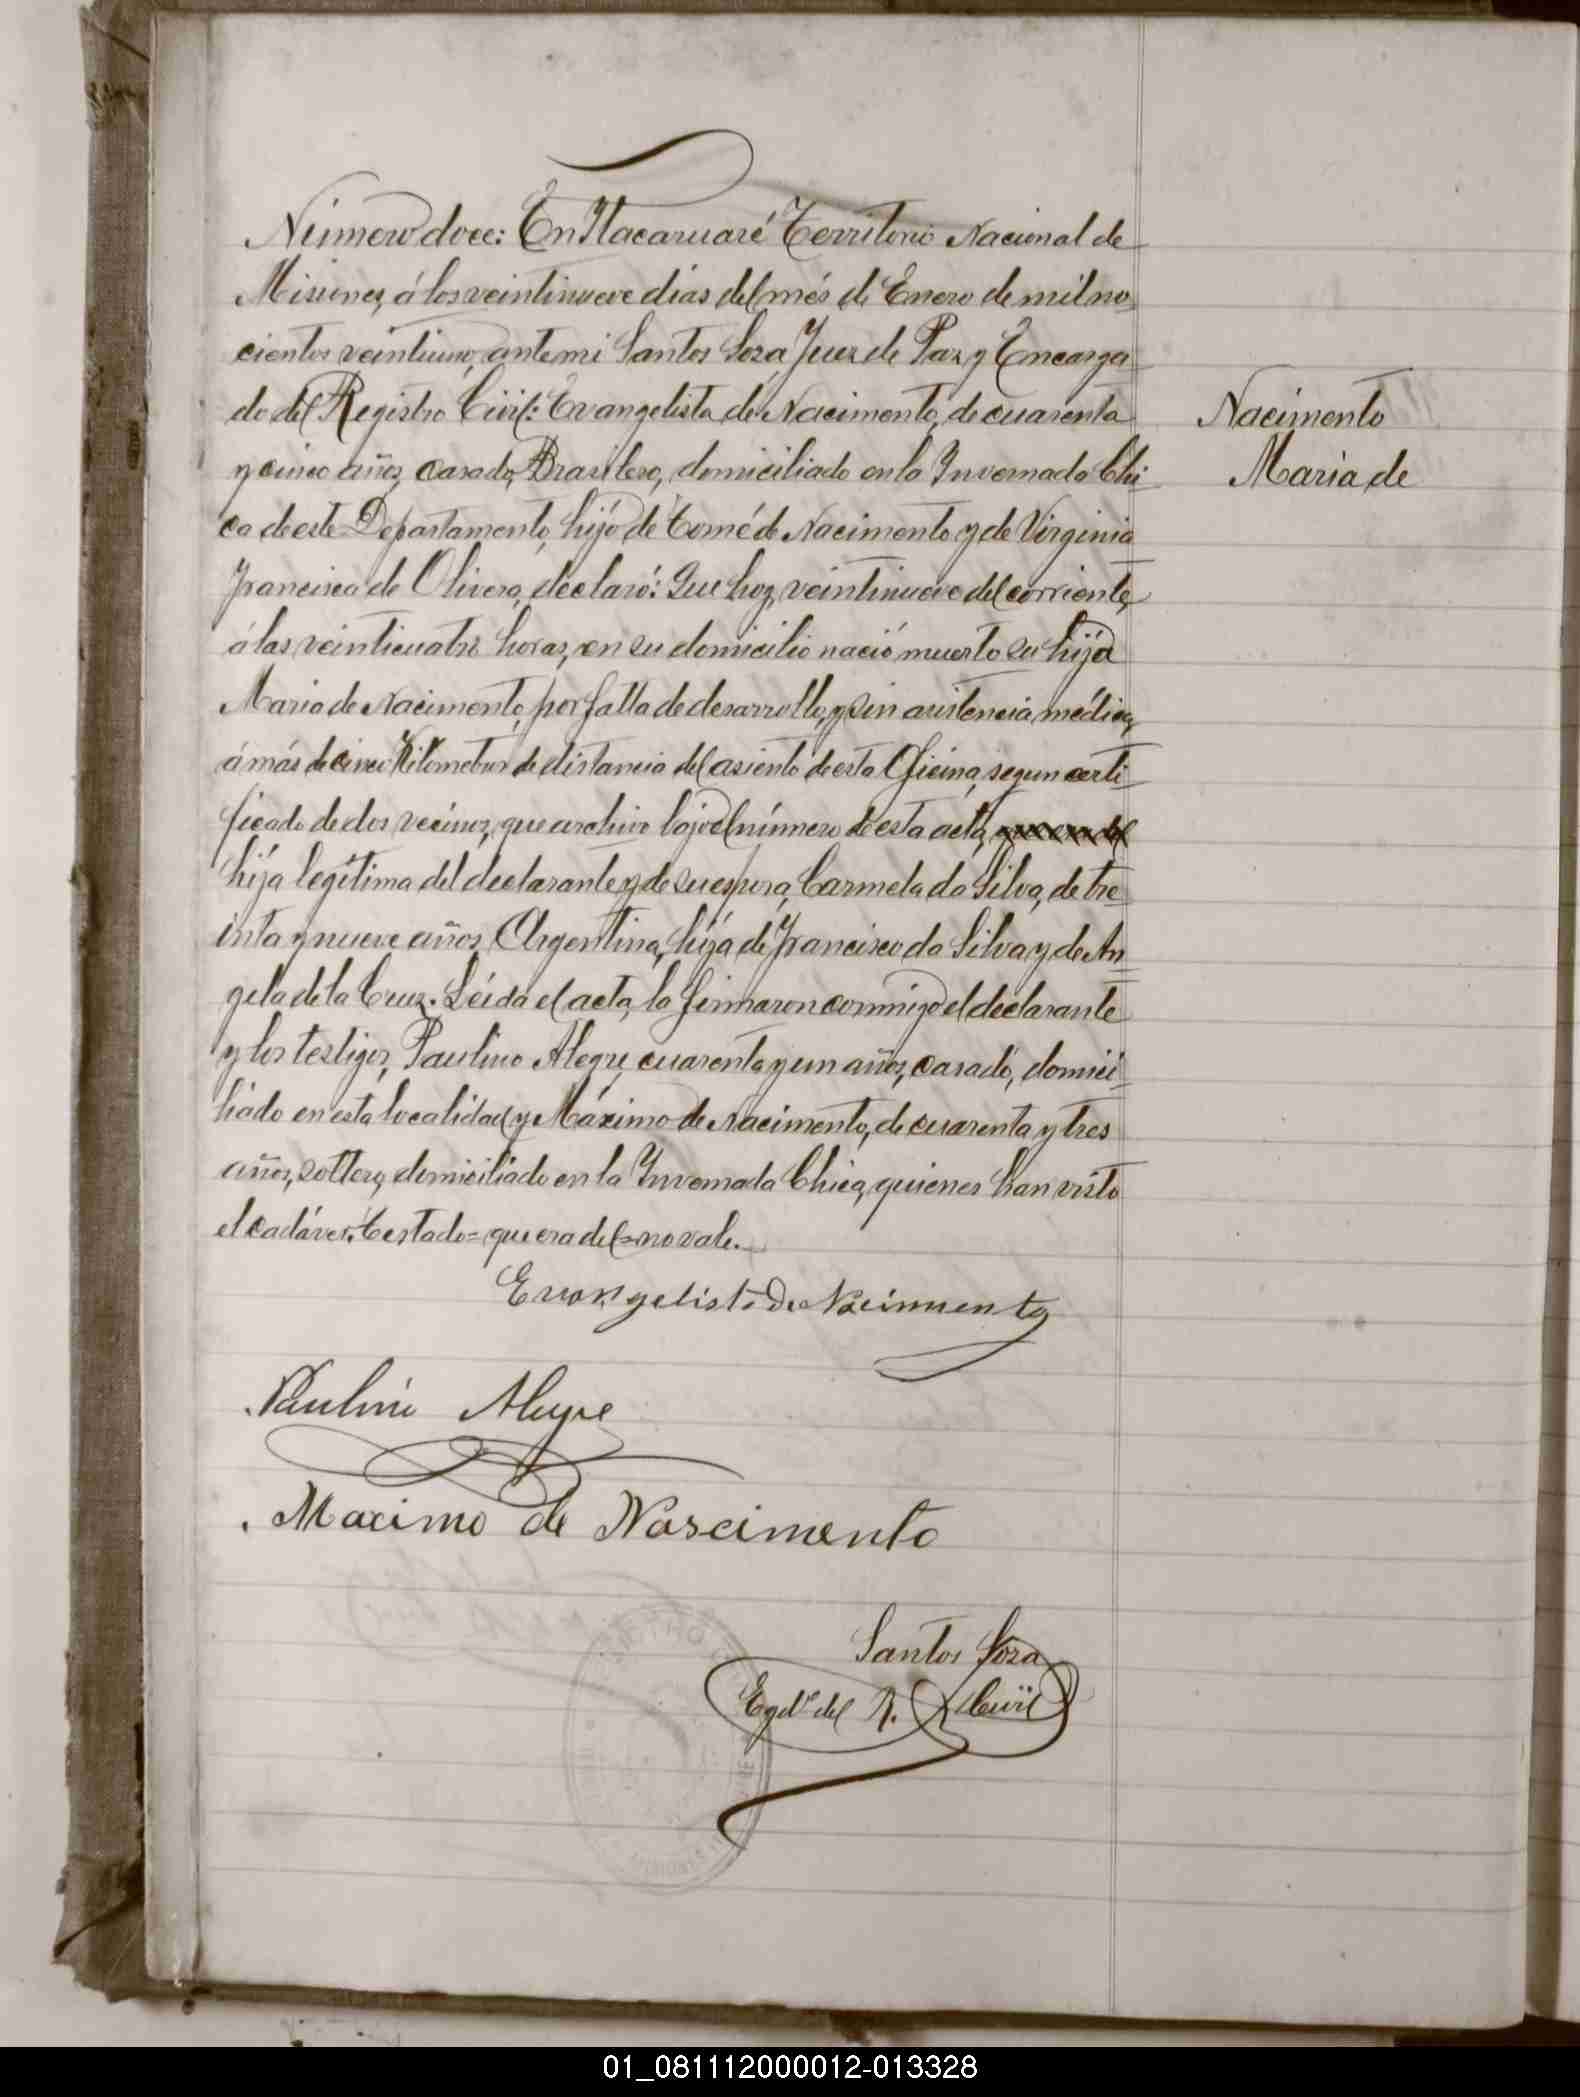 Número doce: En Itacaruaré Territorio Nacional de
Misiones, á los veintinueve dias del més de Enero de mil no-
cientos veintiuno, ante mi Santos Soza, Juez de Paz y Encarga-
do del Registro Civil: Evangelista de Nacimento, de cuarenta
y cinco años, casado, Brasilero, domiciliado en la Invernada Chi-
ca de este Departamento, hijo de Tomé de Nacimento y de Virginia
Francisca de Olivera, declaró: Que hoy, veintinueve del corriente,
á las veinticuatro horas, en su domicilio nació muerto su hija
Maria de Nacimento, por falta de desarrollo, y sin asistencia médica,
á más de cinco Kilometros de distancia del asiento de esta Oficina, segun certi-
ficado de dos vecinos, que archivo bajo el número de esta acta, que era del
hija legítima del declarante y de su esposa, Carmela da Silva, de tre-
inta y nueve años, Argentina, hija de Francisco da Silva y de An-
gela de la Cruz. Leida el acta, la firmaron conmigo el declarante
y los testigos, Paulino Alegre, cuarenta y un años, casado, domici-
liado en esta localidad y Máximo de Nacimento, de cuarenta y tres
años, soltero, domiciliado en la Invernada Chica, quienes han visto
el cadáver. Testado = que era del = no vale.
Nacimento
Maria de
Evangelista De Nacimento
Paulino Alegre
Maximo de Nascimento
Santos Soza
Egdo. del R. Civil
01_081112000012-013328